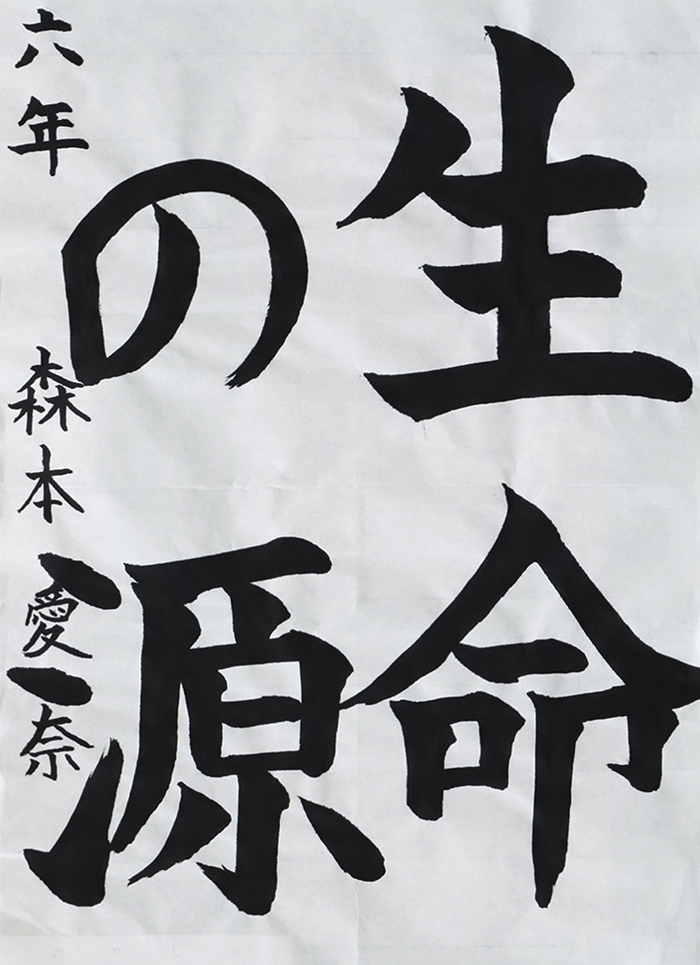 生命
の源
六年 森本愛奈